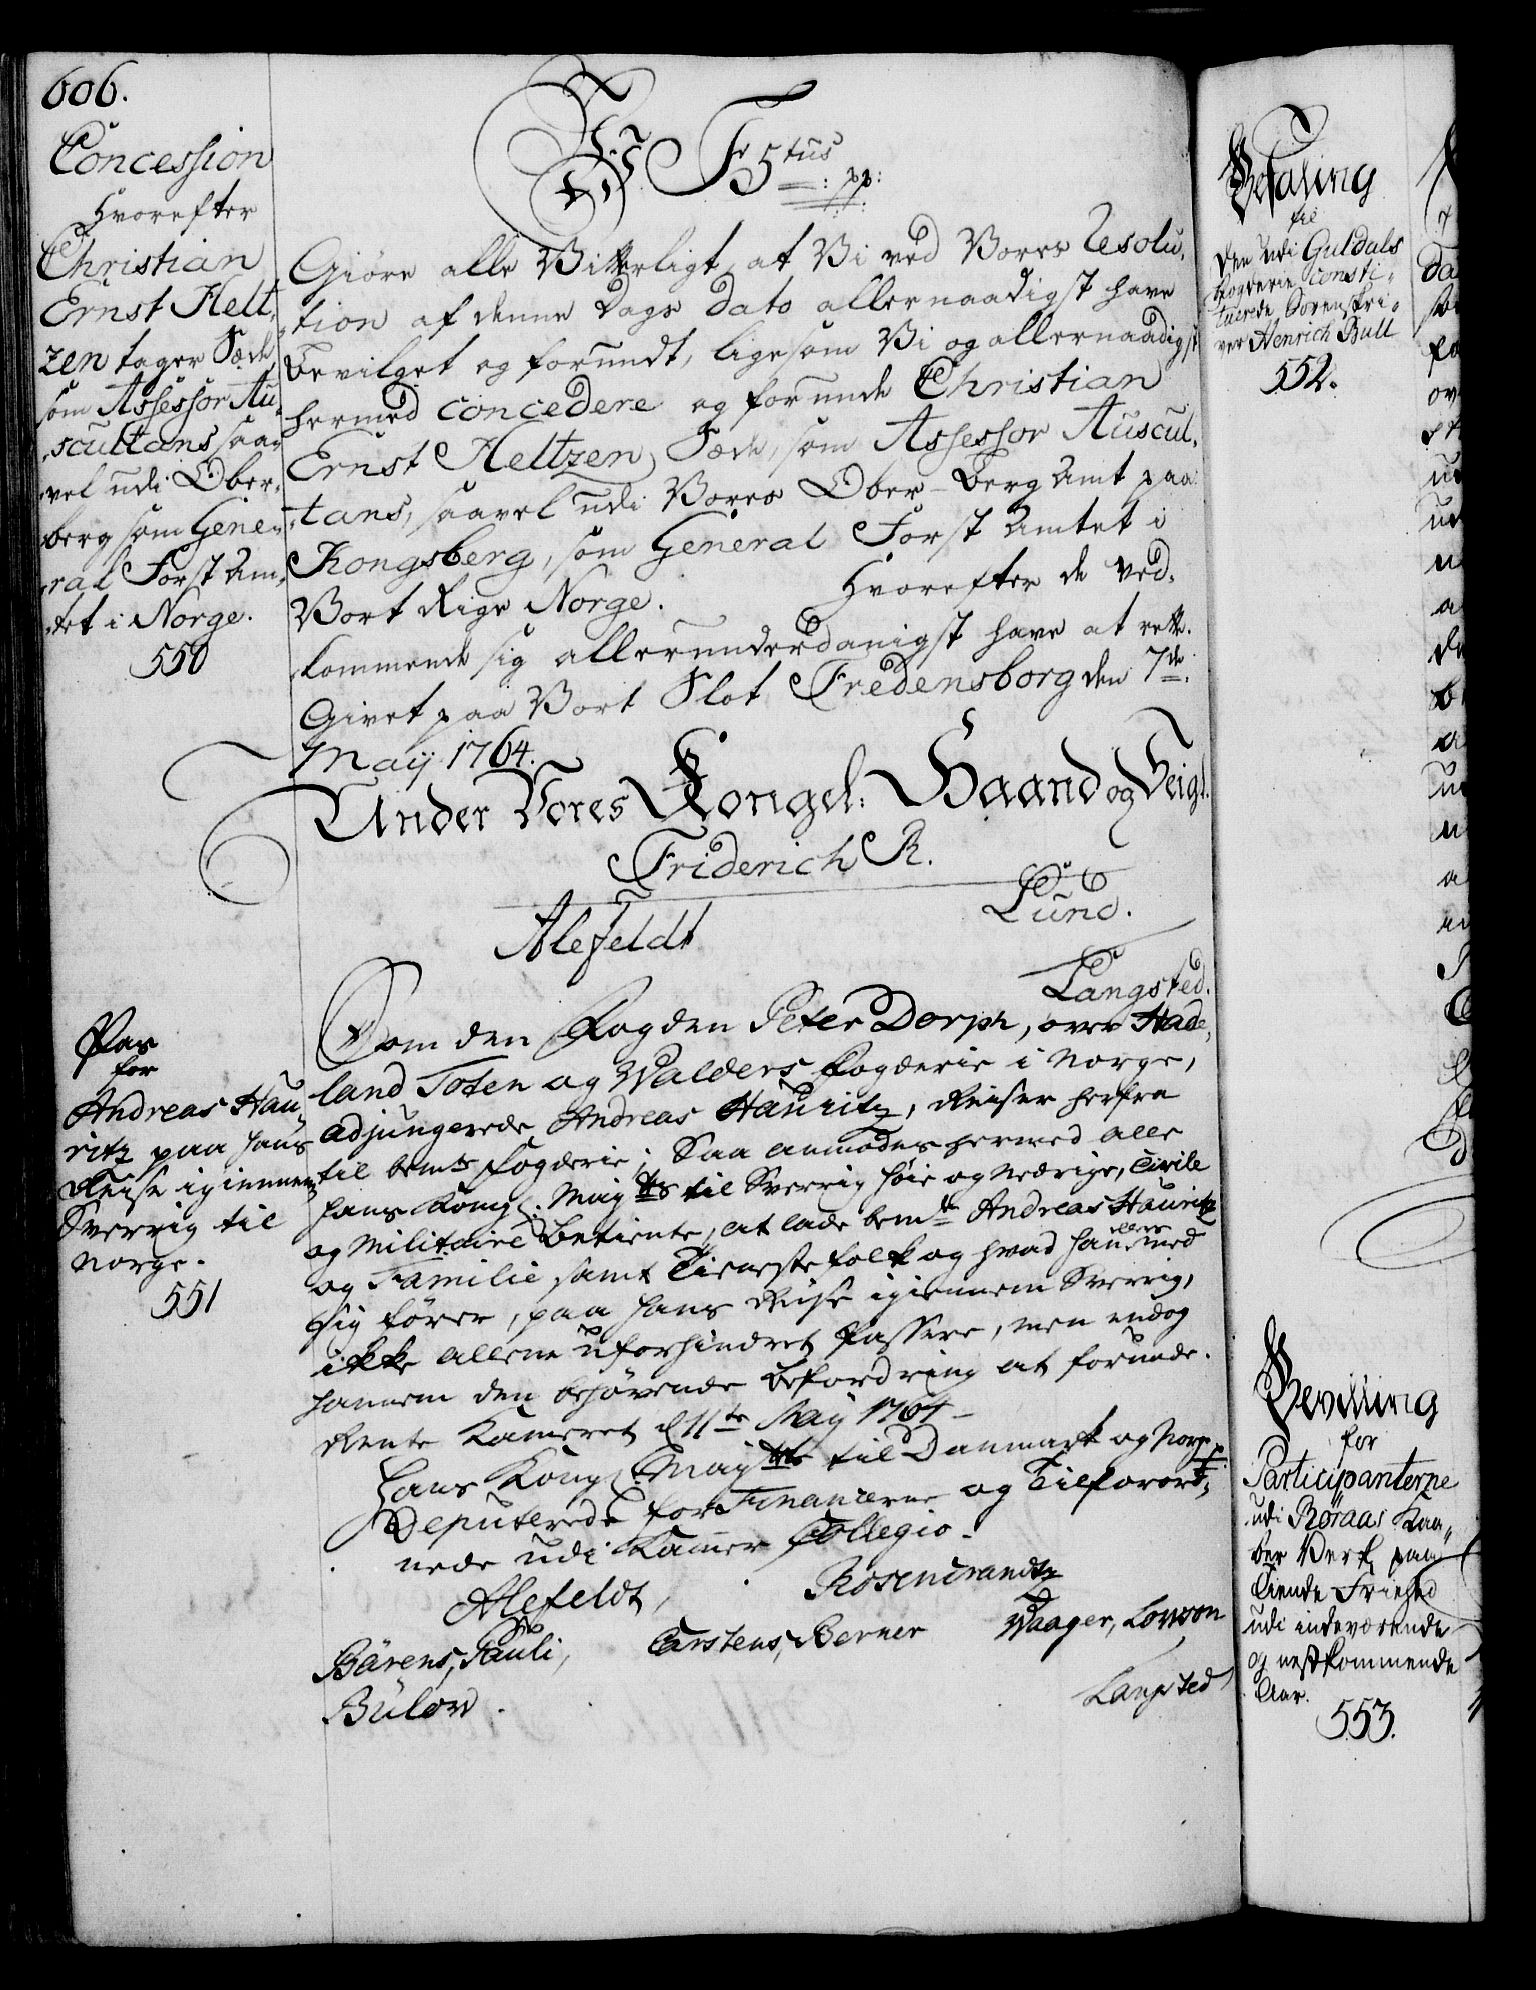 606.
Concession
Hvorefter
Christian
Ernst Helt„
zen tager Sæde
som Assessor Au„
scultans saa„
vel udi Ober„
berg som Gene„
ral Forst Am„
tet i Norge.
550
F 5tus
: pp:
Giøre alle Vitterligt, at Vi ved Vores Resolu„
tion af denne Dags Dato allernaadigst have
bevilget og forundt, ligesom Vi og allernaadigst
hermed concedere og forunde Christian
Ernst Heltzen Sæde, som Assessor Auscul„
tans, saavel udi Vores Ober-Berg Amt paa
Kongsberg, som General Forst Amtet i
Vort Rige Norge. Hvorefter de Ved„
kommende sig allerunderdanigst have at rette.
Givet paa Vort Slot Fredensborg den 7de
Maij 1764.
Under Vores Kongel: Haand og Seigl.
Friderich R.
Lund.
Alefeldt
Langsted.
Pas
for
Andreas Hau„
ritz paa hans
Reise igiennem
Sverrig til
Norge.
551
Som den Fogden Peter Dorph, over Hade„
land Toten og Walders Fogderie i Norge,
adjungerede Andreas Hauritz, Reiser herfra
til bemte Fogderie; Saa anmodes hermed alle
Hans Kongl. Mayts til Sverrig høie og nedrige, Civile
og Militaire Betiente, at lade bemte Andreas Hauritz
og Familie samt Tienestefolk og hvad han ellers med
sig fører, paa hans Reise igiennem Sverrig,
ikke allene uforhindret Passere, men endog
hannem den behøvende Befordring at forunde.
Rente Kammeret d 11te Maij 1764
Hans Kongl. Mayts til Danmark og Norge
Deputerede for Financerne og Tilforord„
nede udi Kammer Collegio.
Alefeldt, Rosencrandtz
Bärens, Pauli, Carstens, Berner Waager, Lowson
Bülow. Langsted
Befaling
til
den udi Guldals
Fogderie consti„
tuerede Sorenskri„
ver Henrich Bull
552.
Bevilling
for
Participanterne
udi Røraas Kaa„
ber Verk paa
Tiende Friehed
udi indeværende
og nestkommende
Aar.
553.